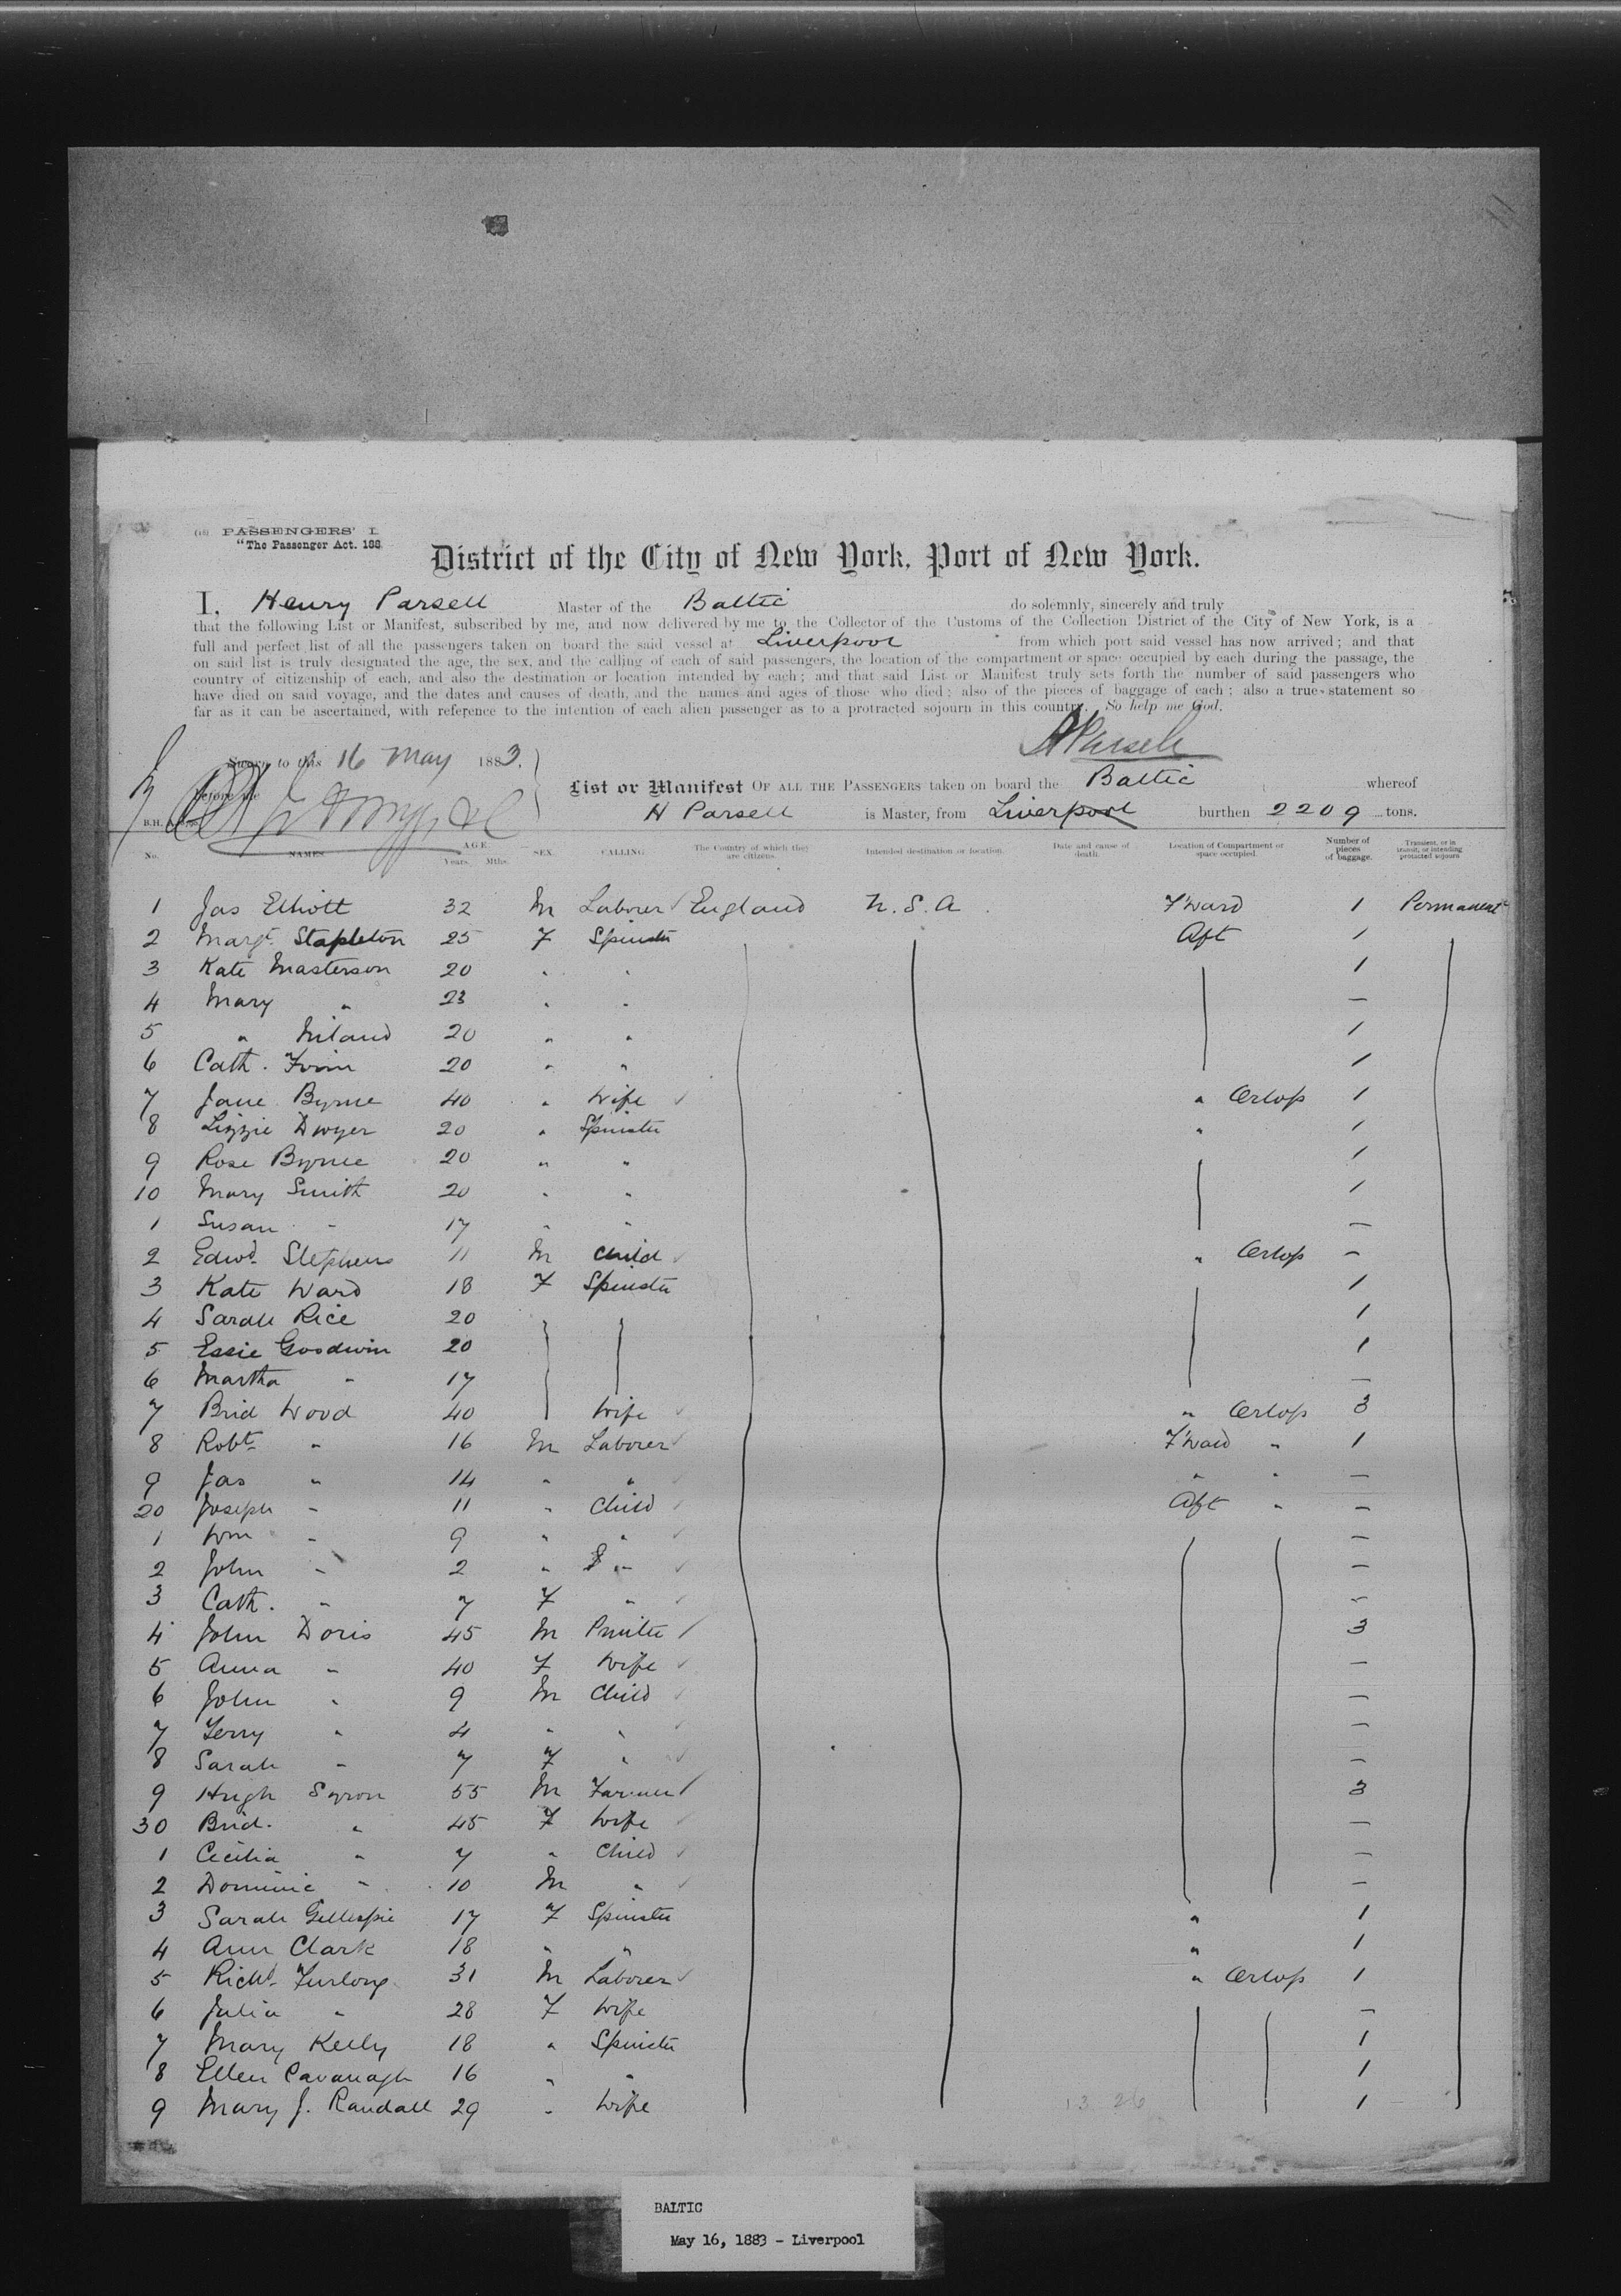 PASSENGERS' L
"The Passenger Act. 188
District of the City of New York, Port of New York.
I, Henry Parsell Master of the Baltic do solemnly, sincerely and truly
that the following List or Manifest, subscribed by me, and now delivered by me to the Collector of the Customs of the Collection District of the City of New York, is a
full and perfect list of all the passengers taken on board the said vessel at Liverpool from which port said vessel has now arrived; and that
on said list is truly designated the age, the sex, and the calling of each of said passengers, the location of the compartment or space occupied by each during the passage, the
country of citizenship of each, and also the destination or location intended by each; and that said List or Manifest truly sets forth the number of said passengers who
have died on said voyage, and the dates and causes of death, and the names and ages of those who died; also of the pieces of baggage of each; also a true statement so
far as it can be ascertained, with reference to the intention of each alien passenger as to a protracted sojourn in this country. So help me God.
H Parsell
Sworn to this 16 May 1883.
before me
List or Manifest OF ALL THE PASSENGERS taken on board the Baltic whereof
H Parsell is Master, from Liverpool burthen 2209 tons.
No. NAMES. AGE Years. Mths. SEX. CALLING. The Country of which they are citizens. Intended destination or location. Date and cause of death. Location of Compartment or space occupied. Number of pieces of baggage. Transient, or in transit, or intending protracted sojourn
1 Jas Elliott 32 M Laborer England U.S.A. F'ward 1 Permanent
2 Margt Stapleton 25 F Spinster Aft 1
3 Kate Masterson 20 " " 1
4 Mary " 23 " " —
5 " Niland 20 " " 1
6 Cath. 20 " " 1
7 Jane Byrne 40 " Wife " Orlop 1
8 Lizzie Dwyer 20 " Spinster " 1
9 Rose Byrne 20 " " 1
10 Mary Smith 20 " " 1
1 Susan " 17 " " —
2 Edwd Stephens 11 M Child " Orlop —
3 Kate Ward 18 F Spinster 1
4 Sarah Rice 20 1
5 Essie Goodwin 20 1
6 Martha " 17 —
7 Brid Wood 40 Wife " Orlop 3
8 Robt " 16 M Laborer F'ward " 1
9 Jas " 14 " " " " —
20 Joseph " 11 " Child Aft " —
1 Wm " 9 " " —
2 John " 2 " " —
3 Cath. " 7 F " —
4 John Doris 45 M Printer 3
5 Anna " 40 F Wife —
6 John " 9 M Child —
7 Terry " 4 " " —
8 Sarah " 7 F " —
9 Hugh Syron 55 M Farmer 3
30 Brid. " 45 F Wife —
1 Cecilia " 7 " Child —
2 Dominic " 10 M " —
3 Sarah Gillespie 17 F Spinster " 1
4 Ann Clark 18 " " " 1
5 Richd Furlong 31 M Laborer " Orlop 1
6 Julia " 28 F Wife —
7 Mary Kelly 18 " Spinster 1
8 Ellen Cavanagh 16 " " 1
9 Mary J. Randall 29 " Wife 1
13 26
BALTIC
May 16, 1883 - Liverpool